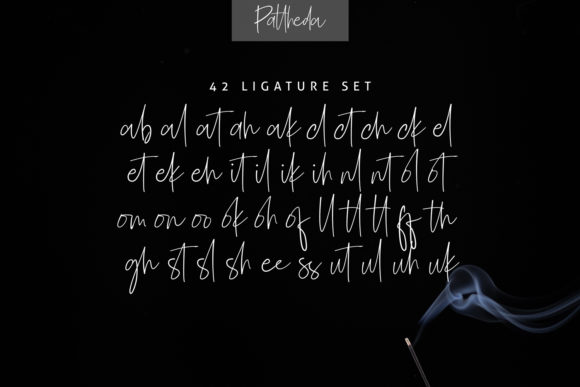 Pattheda
42 LIGATURE SET
ab al at ah ak cl ct ch ck el
et ek eh it il ik ih nl nt ol ot
om on oo ok oh of ll tl tt ff th
gh st sl sh ee ss ut ul uh uk